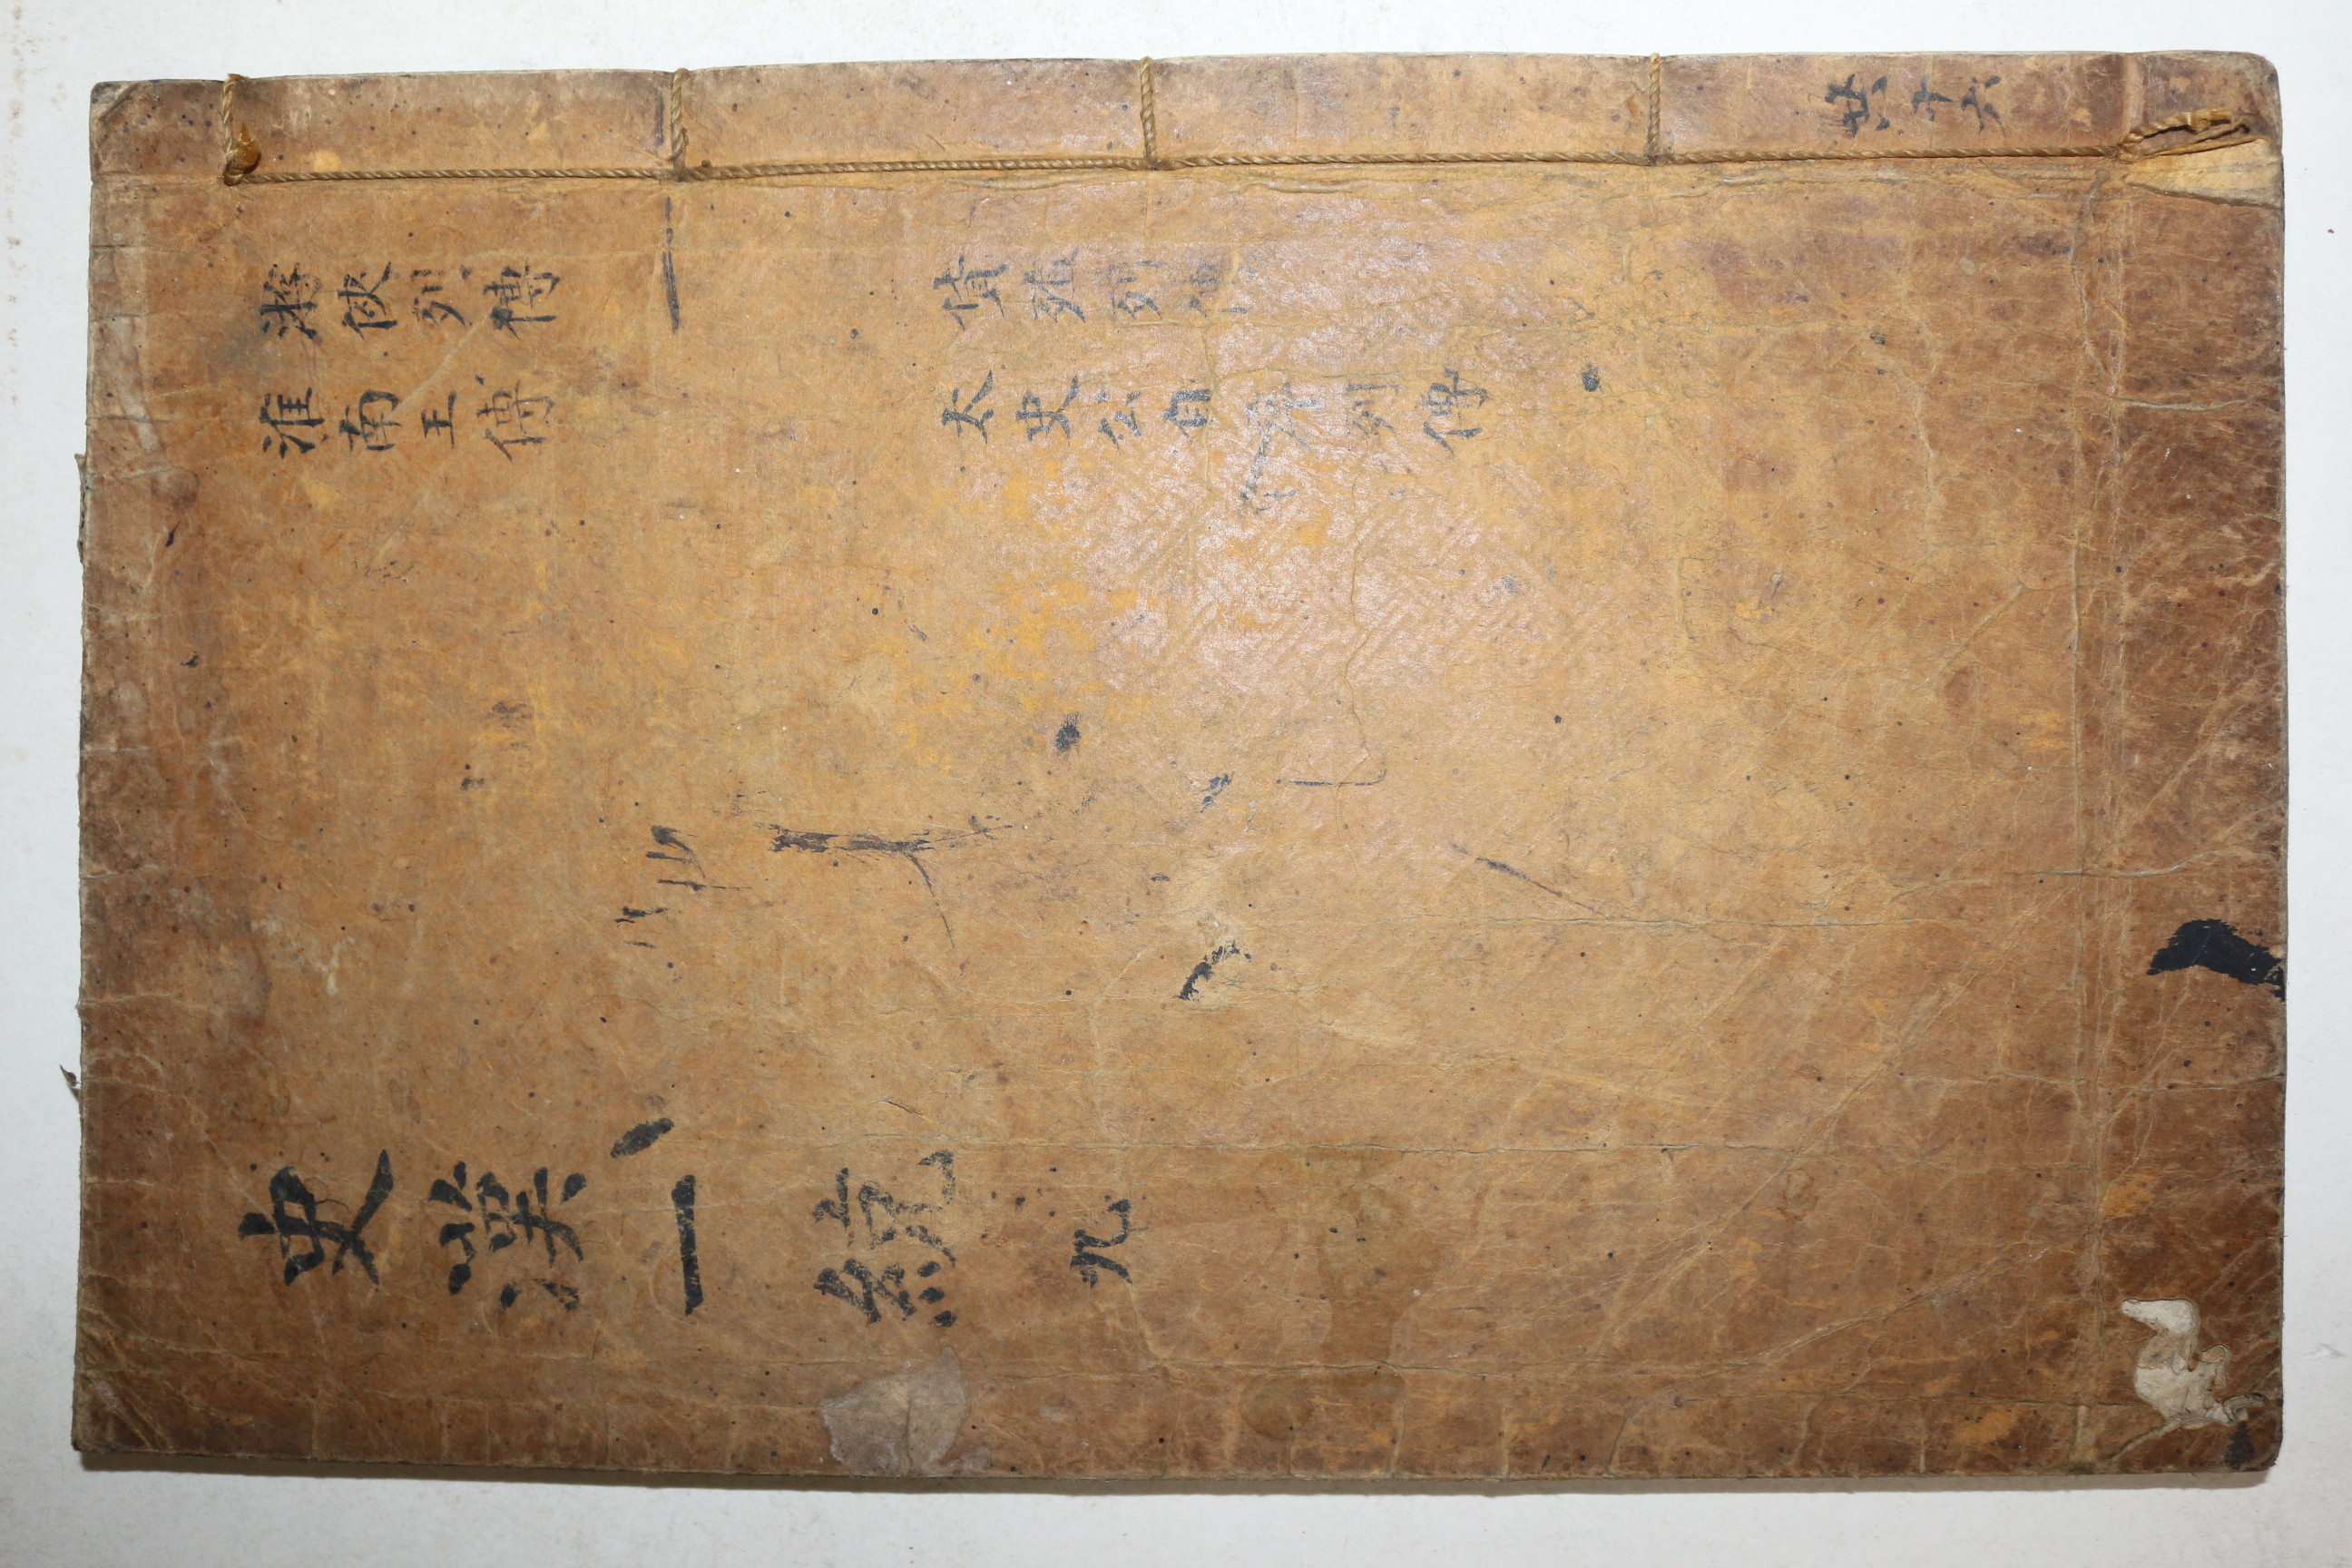 游俠列傳
淮南王傳
貨殖列傳
太史公自序列傳
史漢一統 九
共十六